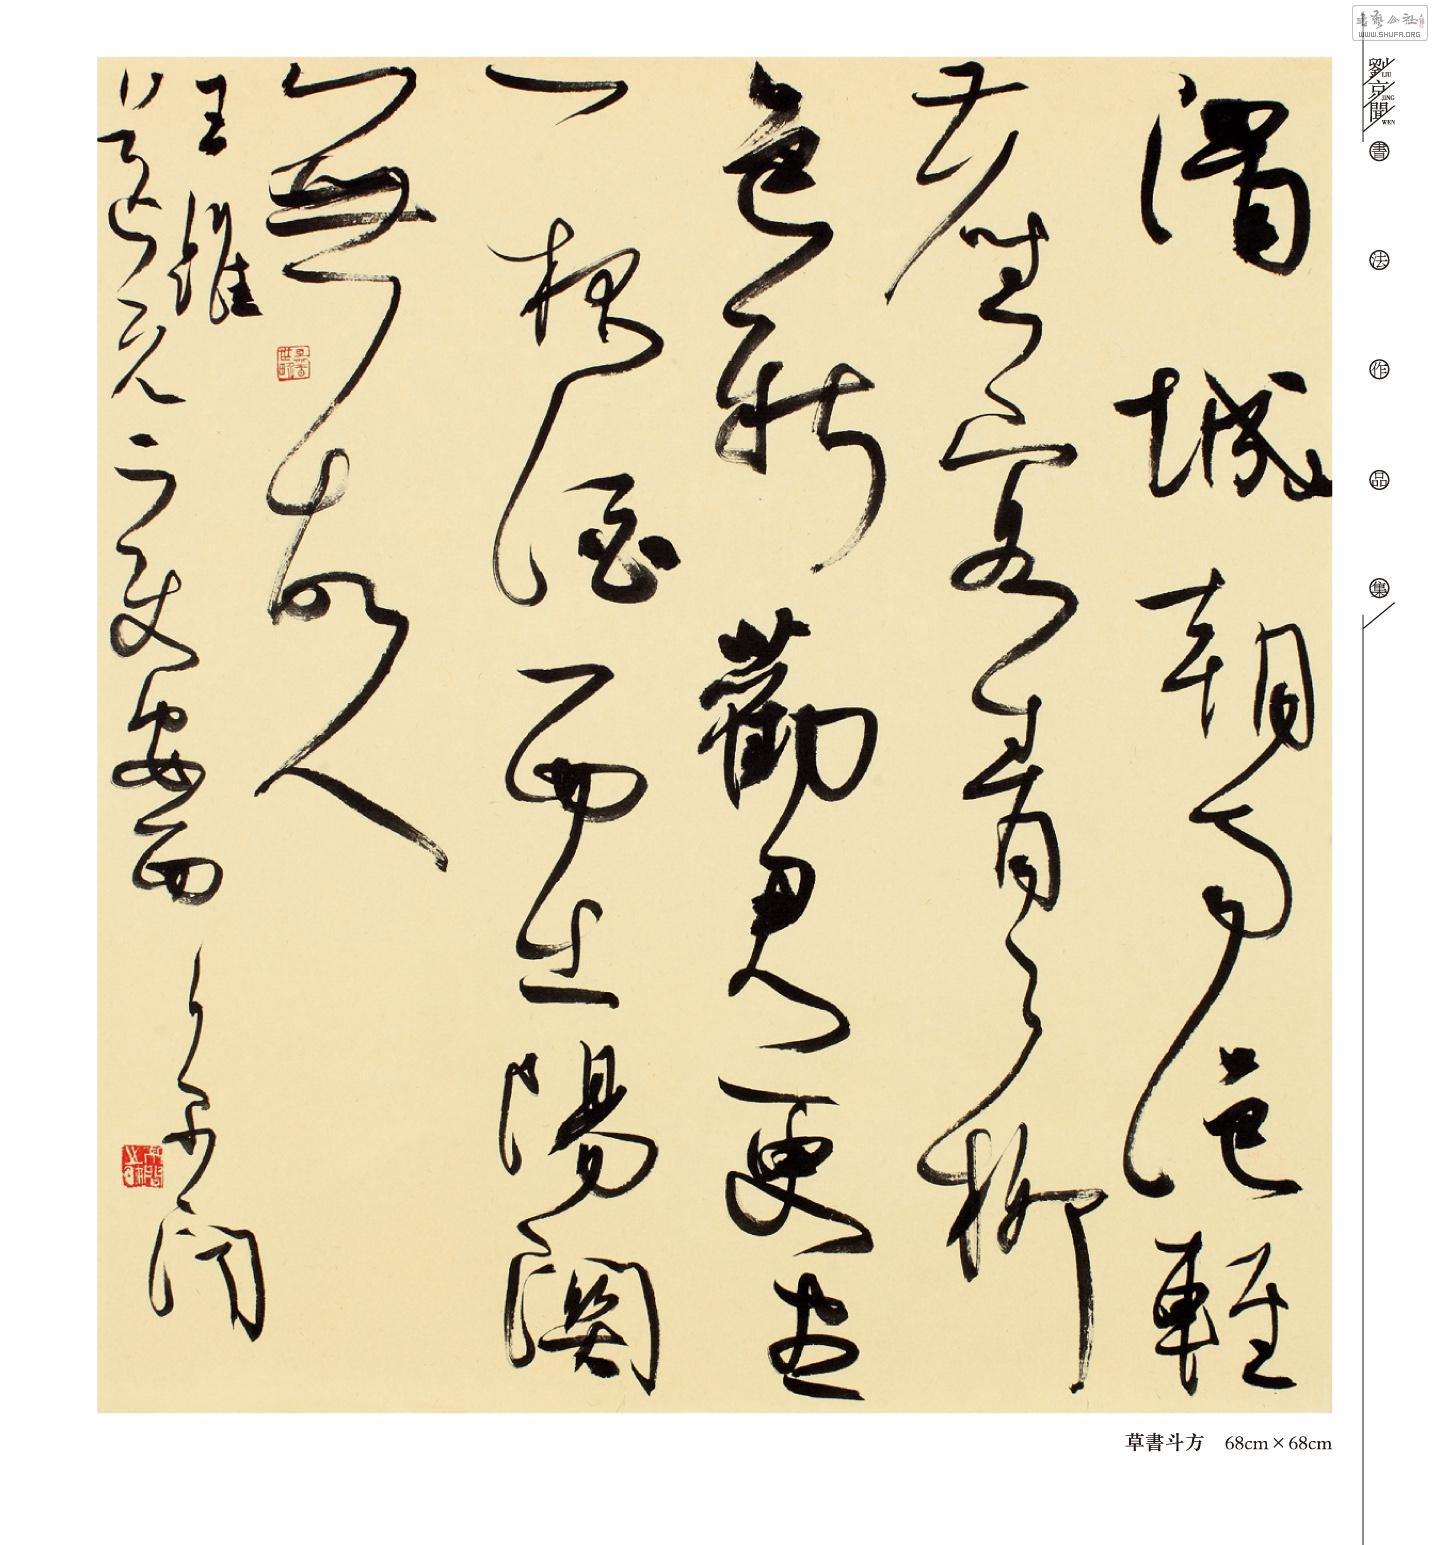 渭城朝雨浥輕
塵客舍青々柳
色新勸君更盡
一杯酒西出陽關
無故人
王維
送元二使安西
劉京聞
劉京聞
LIU
JING
WEN
書法作品集
草書斗方 68cm×68cm
書藝公社
WWW.SHUFA.ORG